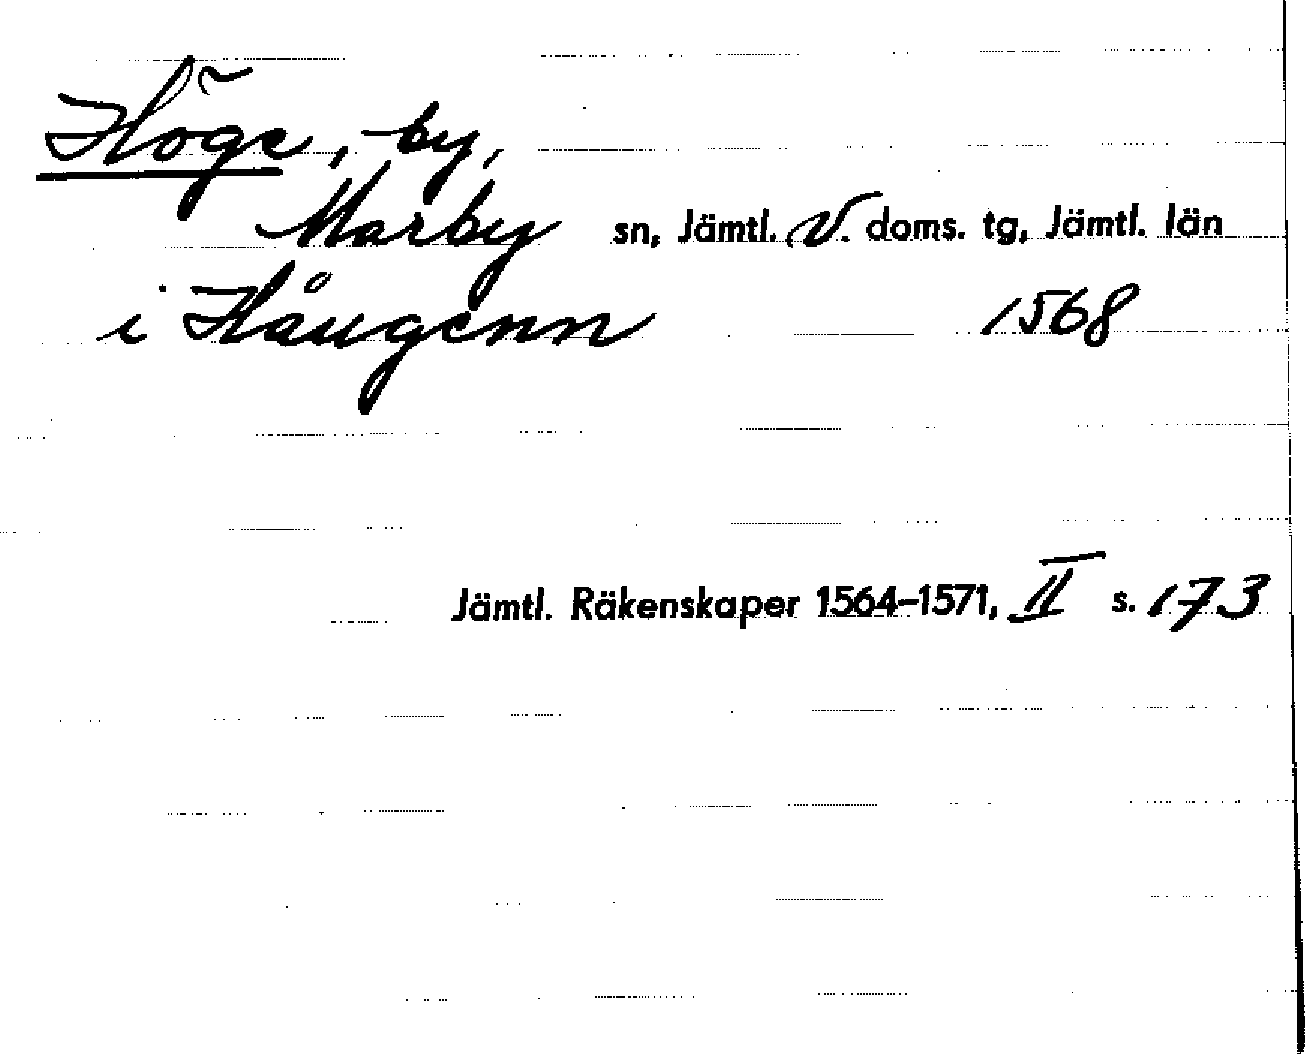 Höge, by,
Marby sn, Jämtl. V. doms. tg, Jämtl. län
i Håugenn 1568
Jämtl. Räkenskaper 1564-1571, II s. 173